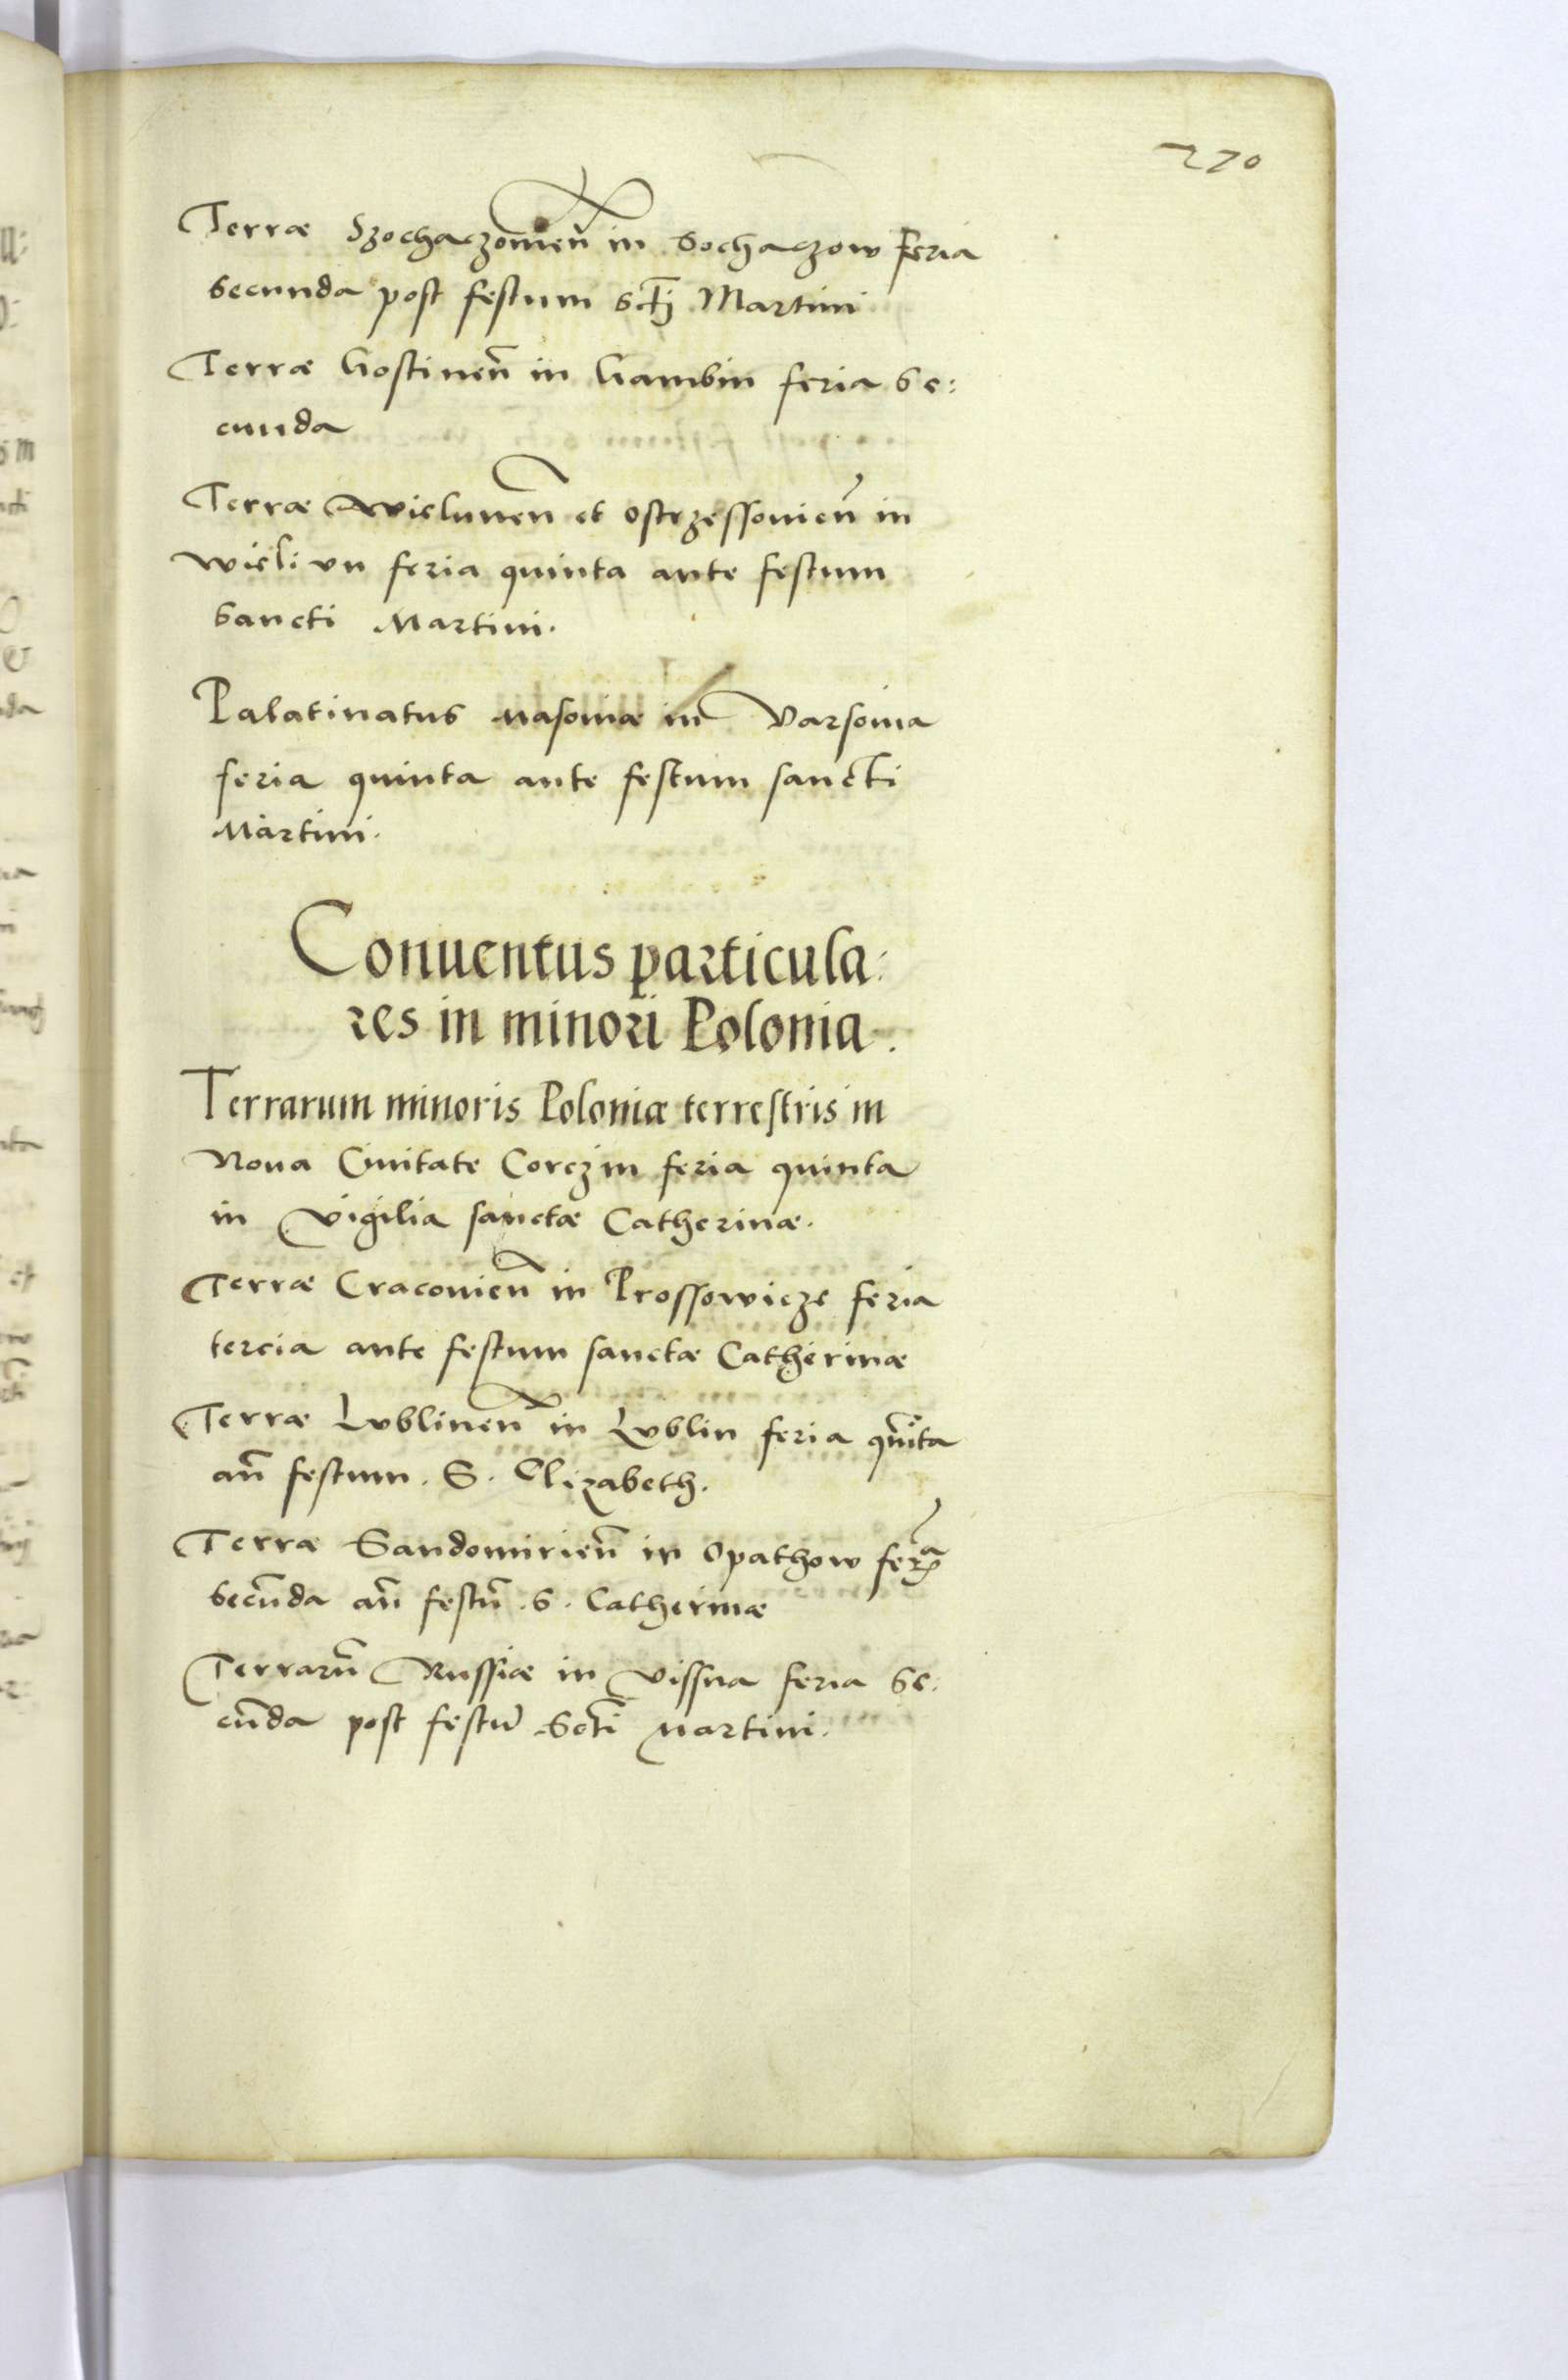 270
Terræ Szochaczouien̄ in Sochaczow Feria
secunda post festum sctj Martini
Terræ Gostinen̄ in Gambin feria se:
cunda
Terræ Wielunen̄ et Ostrzessouien̄ in
Wieliun feria quinta ante festum
Sancti Martini.
Palatinatus Masouiæ in Varsouia
feria quinta ante festum sancti
Martini.
Conuentus particula:
res in minori Polonia.
Terrarum minoris Poloniæ terrestris in
Noua Ciuitate Corczin feria quinta
in Vigilia sanctæ Catherinæ.
Terræ Cracouien̄ in Prossowicze feria
tercia ante festum sanctæ Catherinæ
Terræ Lublinen̄ in Lublin feria qūita
an̄ festum. S. Elizabeth.
Terræ Sandomirien̄ in Opathow fera
secūda an̄ festū. S. Catherinæ
Terrarū Russiæ in Vissna feria se:
cūda post festū Scti Martini.